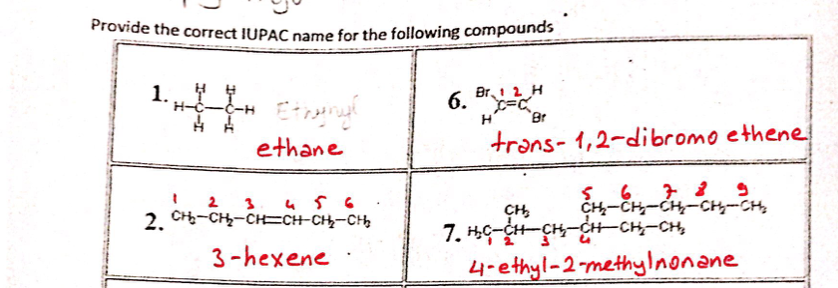 Provide the correct IUPAC name for the following compounds
1.
H H
H-C-C-H
H H
ethane
6.
Br 1 2 H
C=C
H Br
trans-1,2-dibromo ethene
2.
1 2 3 4 5 6
CH₃-CH₂-CH=CH-CH₂-CH₃
3-hexene
7.
5 6 7 8 9
CH₃ CH₂-CH₂-CH₂-CH₂-CH₃
H₃C-CH-CH₂-CH-CH₂-CH₃
1 2 3 4
4-ethyl-2-methylnonane